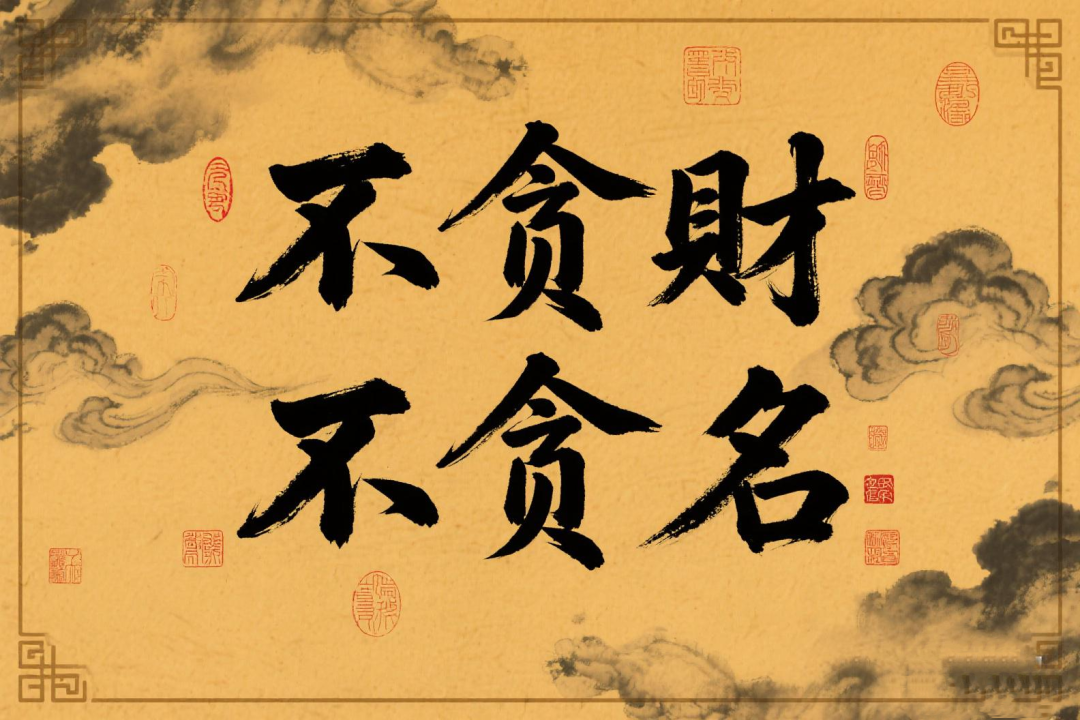 不贪財
不贪名